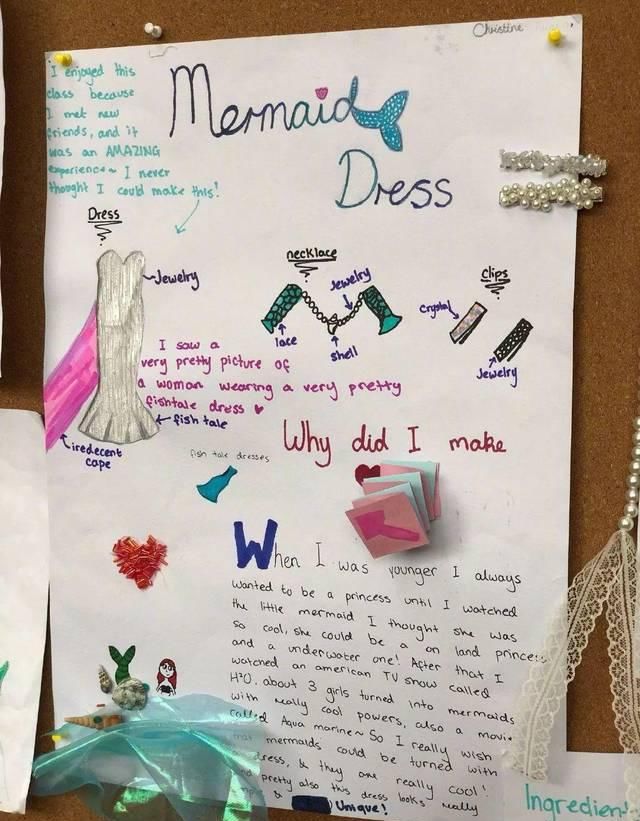 Christine
I enjoyed this
class because
I met new
friends, and it
was an AMAZING
experience~ I never
thought I could make this!
Mermaid
Dress
Dress
Jewelry
fish tale
iredecent
cape
necklace
Jewelry
lace
shell
Clips
Crystal
Jewelry
I saw a
very pretty picture of
a woman wearing a very pretty
fishtale dress ♥
fish tale dresses
Why did I make
When I was younger I always
wanted to be a princess until I watched
the little mermaid I thought she was
so cool, she could be a on land princess
and a underwater one! After that I
watched an american TV show called
H²O. about 3 girls turned into mermaids
with really cool powers, also a movie
called Aqua marine~ So I really wish
that mermaids could be turned with
dress, & they are really cool!
and pretty also this dress looks really
& Unique!
Ingredien